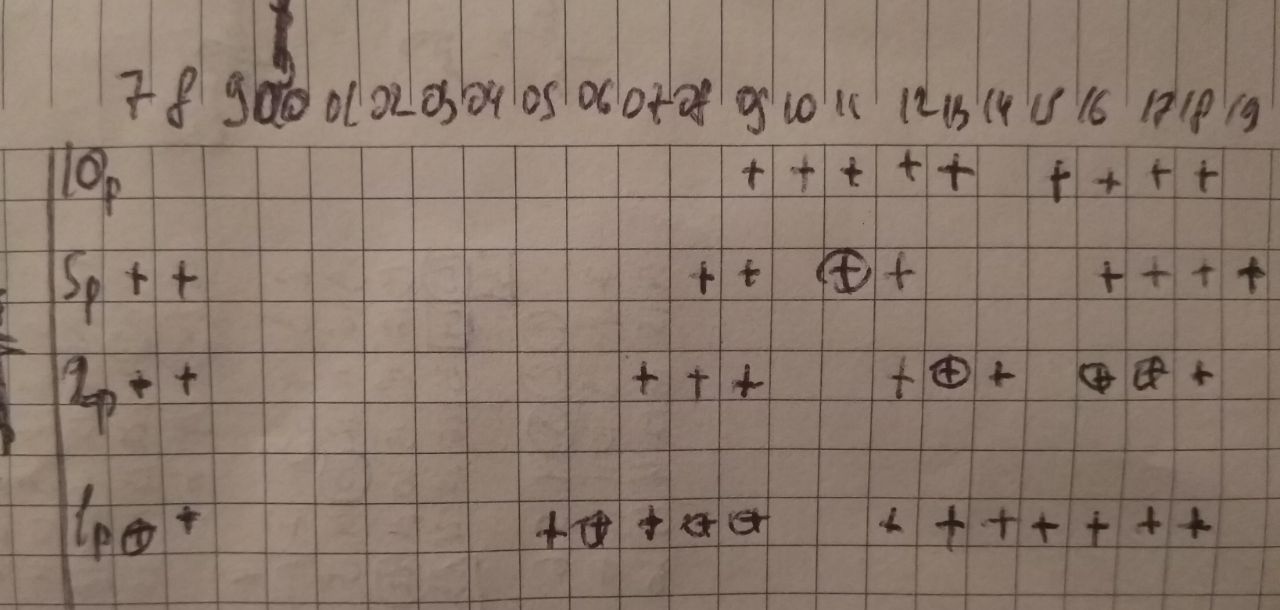 7 8 9 00 01 02 03 04 05 06 07 08 09 10 11 12 13 14 15 16 17 18 19
10р + + + + + + + + +
5р + + + + + + + + + +
2р + + + + + + + + + + +
1р + + + + + + + + + + + + + +